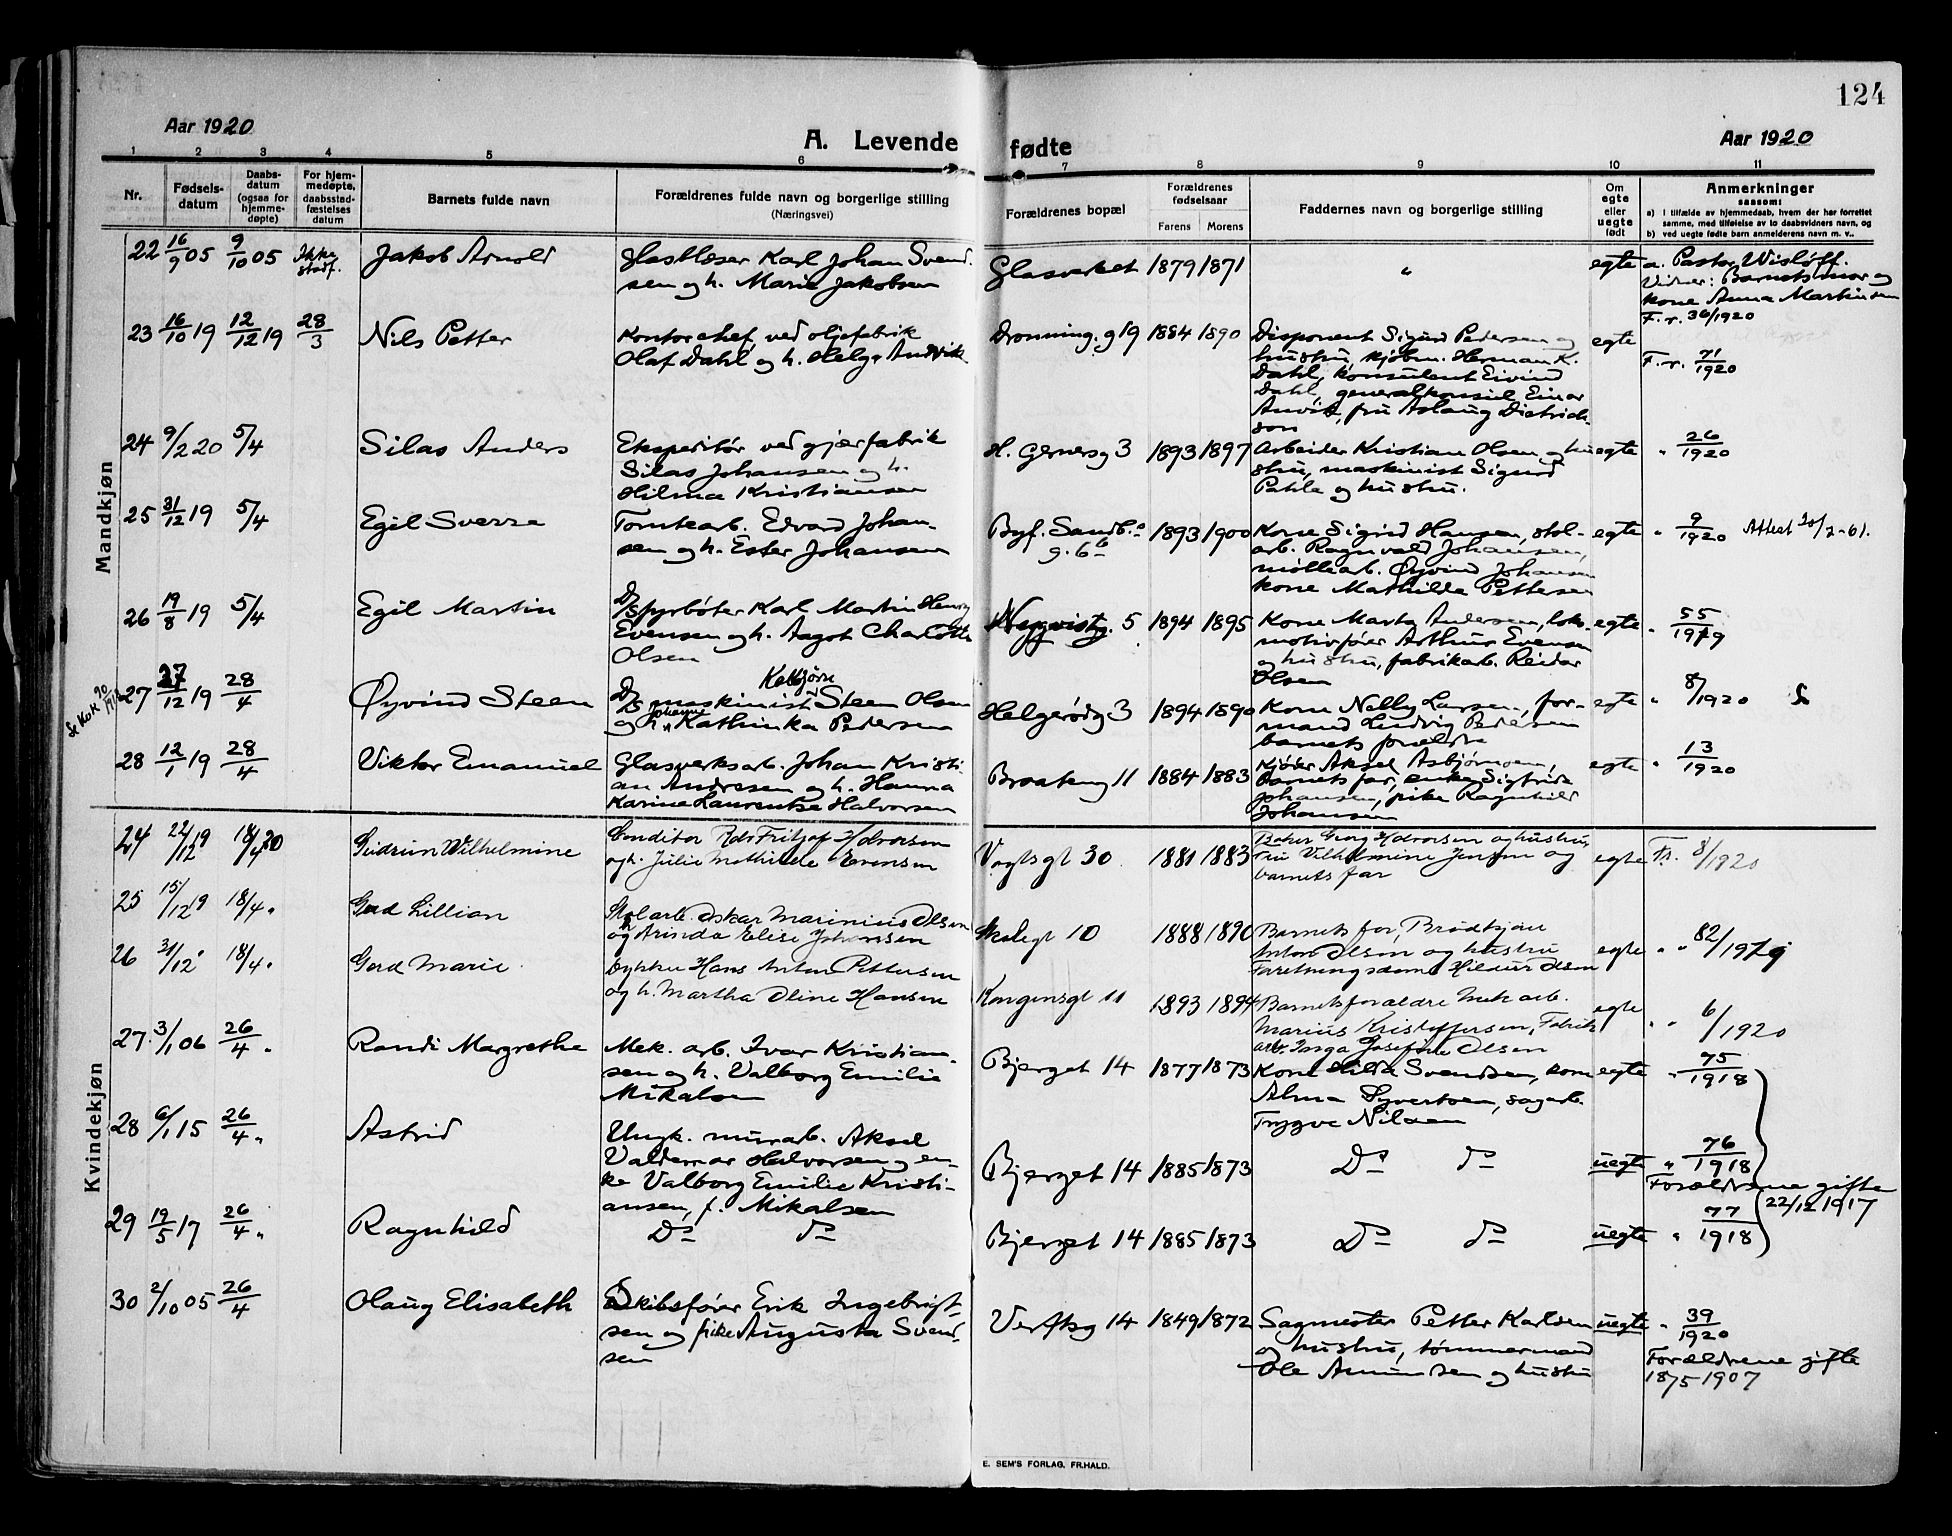 124
Aar 1920
A. Levende fødte
Aar 1920
1 2 3 4 5 6 7 8 9 10 11
Nr.
Fødsels-
datum
Daabs-
datum
(ogsaa for
hjemme-
døpte)
For hjem-
medøpte,
daabsstad-
fæstelses
datum
Barnets fulde navn
Forældrenes fulde navn og borgerlige stilling
(Næringsvei)
Forældrenes bopæl
Forældrenes
fødselsaar
Farens Morens
Faddernes navn og borgerlige stilling
Om
egte
eller
uegte
født
Anmerkninger
saasom:
a) I tilfælde av hjemmedaab, hvem der har forrettet
samme, med tilføielse av to daabsvidners navn, og
b) ved uegte fødte barn anmelderens navn m. v..
Mandkjøn
22 16/9 05 9/10 05 Ikke
stadf.
Jakob Arnold
Glasblæser Karl Johan Svend-
sen og h. Marie Jakobsen
Glasverket 1879 1871 " egte
a. Pastor Wisløff.
Vidner: Barnets mor og
kone Anna Martinsen
F. r. 36/1920
23 16/10 19 12/12 19 28/3
Nils Petter
Kontorchef ved oljefabrik
Olaf Dahl og h. Helga Anvik
Dronning. g 19 1884 1890
Disponent Sigurd Pedersen og
hustru, kjøbm. Herman K.
Dahl, konsulent Eivind
Dahl, generalkonsul Einar
Anvik, fru Aslaug Dietrich-
son
egte F. r. 71/1920
24 9/2 20 5/4
Silas Anders
Ekspeditør ved gjærfabrik
Silas Johansen og h.
Hilma Kristiansen
H. Gernersg 3 1893 1897
Arbeider Kristian Olsen og hu-
stru, maskinist Sigurd
Pahle og hustru.
egte " 26/1920
25 31/12 19 5/4
Egil Sverre
Tomtearb. Edvard Johan-
sen og h. Ester Johansen
Byf. Sandb.
g. 6b 1893 1900
Kone Sigrid Hansen, stol-
arb. Ragnvald Johansen,
møllearb. Øyvind Johansen
kone Mathilde Pettersen
egte " 9/1920 Attest 20/2-61.
26 19/8 19 5/4
Egil Martin
D/S fyrbøter Karl Martin Henry
Evensen og h. Aagot Charlotte
Olsen
5 1894 1895
Kone Marta Andersen, loko-
motivfører Arthur Evensen
og hustru, fabrikarb. Reidar
Olsen
egte " 55/1919
27 27/12 19 28/4
Øyvind Steen
Kolbjørn
D/S maskinist Steen Olsen
og h. Johanne Kathinka Pedersen
Helgerødg 3 1894 1890
Kone Nelly Larsen, for-
mand Ludvig Pedersen
barnets forældre
egte " 8/1920
28 12/1 19 28/4
Viktor Emanuel
Glasverksarb. Johan Kristi-
an Andresen og h. Hanna
Karine Laurentse Halvorsen
Braateng 11 1884 1883
Kjører Aksel Asbjørnsen,
barnets far, enke Sigfride
Johansen, pike Ragnhild
Johansen
egte " 13/1920
Kvindekjøn
24 22/12 19 18/4 20
Gudrun Wilhelmine
Conditor Fritjof Halvorsen
og h. Julie Mathilde Evensen
Vogtsgt 30 1881 1883
Baker Georg Halvorsen og hustru,
Fru Vilhelmine Jensen og
barnets far
egte Fr. 8/1920
25 15/12 19 18/4 "
Gerd Lillian
Stolarb. Oskar Marinius Olsen
og Arinda Elise Johansen
Skolegt 10 1888 1890
Barnets far, Brødkjører
Anton Olsen og hustru
Forretningsdame Hildur Olsen
egte " " 82/1919
26 31/12 " 18/4 "
Gerd Marie
Dykker Hans Anton Pettersen
og h. Martha Oline Hansen
Kongensgt 11 1893 1894
Barnets forældre Mek arb.
Marius Kristoffersen, Fabrik
arb. Inga Josefine Olsen
egte " " 6/1920
27 3/1 06 26/4 "
Randi Margrethe
Mek. arb. Ivar Kristian-
sen og h. Valborg Emilie
Mikalsen
Bjerget 14 1877 1873
Kone Hilda Svendsen, kone
Alma Syvertsen, sagarb.
Trygve Nilsen
egte " 75/1918
28 6/1 15 26/4 "
Astrid
Ungk. murarb. Aksel
Valdemar Halvorsen og en-
ke Valborg Emilie Kristi-
ansen, f. Mikalsen
Bjerget 14 1885 1873
Do do
uegte " 76/1918
Forældrene gifte
22/12 1917
29 19/5 17 26/4 "
Ragnhild
Do do
Bjerget 14 1885 1873
Do do
uegte " 77/1918
30 2/10 05 26/4
Olaug Elisabeth
Skibsfører Erik Ingebrigt-
sen og pike Augusta Svend-
sen
Verftsg 14 1849 1872
Sagmester Petter Karlsen
og hustru, tømmermand
Ole Amundsen og hustru
uegte " 39/1920
Forældrene gifte
18/5 1907
E. SEM'S FORLAG, FR.HALD.